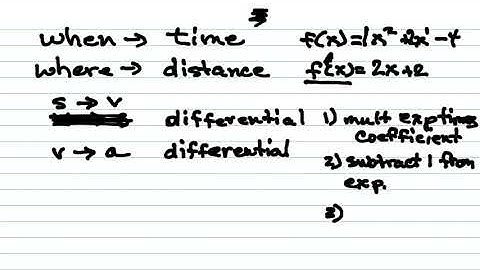 when → time
where → distance
s → v
differential
v → a differential
f(x) = 1x² + 2x¹ - 4
f'(x) = 2x + 2
1) mult exp times
coefficient
2) subtract 1 from
exp.
3)